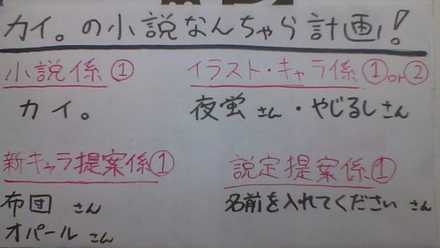 カイ。の小説なんちゃら計画!
小説係①
イラスト・キャラ係①or②
カイ。
夜蛍さん・やじるしさん
新キャラ提案係①
説定提案係①
布団さん
名前を入れてくださいさん
オパールさん